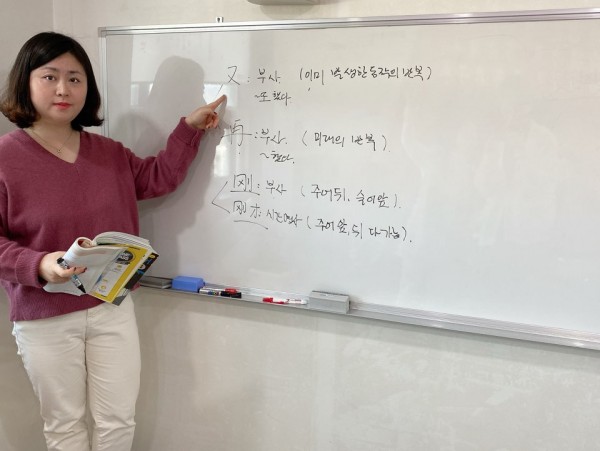 又 : 부사. (이미 발생한 동작의 반복)
~또 했다.
再 : 부사. (미래의 반복).
~했다.
刚 : 부사 (주어 뒤, 술어 앞).
刚才 : 시간명사 (주어 앞, 뒤 다 가능).